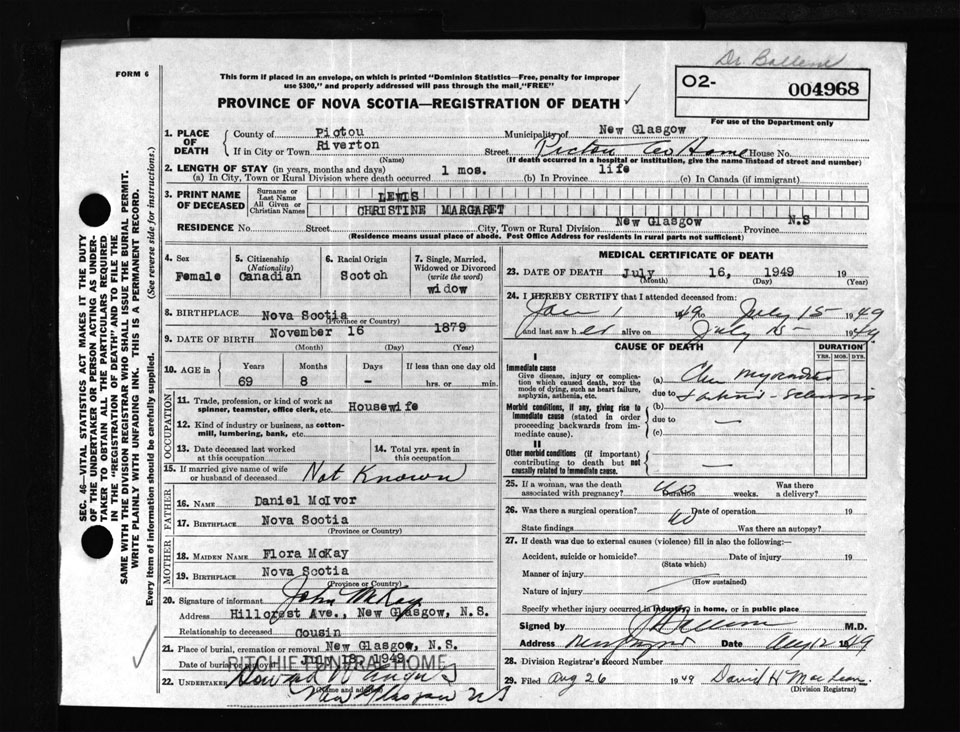 Dr. Ballem
FORM 6
This form if placed in an envelope, on which is printed "Dominion Statistics—Free, penalty for improper
use $300," and properly addressed will pass through the mail "FREE"
O2- 004968
For use of the Department only
PROVINCE OF NOVA SCOTIA—REGISTRATION OF DEATH ✓
1. PLACE OF DEATH
County of Pictou Municipality of New Glasgow
If in City or Town Riverton Street Pictou Co Home House No.
(Name) (If death occurred in a hospital or institution, give the name instead of street and number)
2. LENGTH OF STAY (in years, months and days)
(a) In City, Town or Rural Division where death occurred 1 mos. (b) In Province life (c) In Canada (if immigrant)
3. PRINT NAME OF DECEASED
Surname or Last Name LEWIS
All Given or Christian Names CHRISTINE MARGARET
RESIDENCE No. Street City, Town or Rural Division New Glasgow Province N.S
(Residence means usual place of abode. Post Office Address for residents in rural parts not sufficient)
4. Sex Female
5. Citizenship (Nationality) Canadian
6. Racial Origin Scotch
7. Single, Married, Widowed or Divorced (write the word) widow
8. BIRTHPLACE Nova Scotia
(Province or Country)
9. DATE OF BIRTH November 16 1879
(Month) (Day) (Year)
10. AGE in Years 69 Months 8 Days - If less than one day old hrs. or min.
OCCUPATION
11. Trade, profession or kind of work as
spinner, teamster, office clerk, etc. Housewife
12. Kind of industry or business, as cotton-
mill, lumbering, bank, etc.
13. Date deceased last worked at this occupation
14. Total yrs. spent in this occupation
15. If married give name of wife
or husband of deceased Not Known
FATHER
16. NAME Daniel McIvor
17. BIRTHPLACE Nova Scotia
(Province or Country)
MOTHER
18. MAIDEN NAME Flora McKay
19. BIRTHPLACE Nova Scotia
(Province or Country)
20. Signature of informant John McKay
Address Hillcrest Ave., New Glasgow, N.S.
Relationship to deceased Cousin
21. Place of burial, cremation or removal New Glasgow, N.S.
Date of burial or removal JULY 18, 1949
RITCHIE FUNERAL HOME
22. UNDERTAKER Howard W Angus
(Name and address)
New Glasgow NS
MEDICAL CERTIFICATE OF DEATH
23. DATE OF DEATH July 16, 1949 19
(Month) (Day) (Year)
24. I HEREBY CERTIFY that I attended deceased from:
Jan 1 1949 to July 15 1949
and last saw her alive on July 15 1949
CAUSE OF DEATH DURATION
YRS. MOS. DYS.
I
Immediate cause
Give disease, injury or complica-
tion which caused death, NOT the
mode of dying, such as heart failure,
asphyxia, asthenia, etc.
(a) Chr
due to
Morbid conditions, if any, giving rise to
immediate cause (stated in order
proceeding backwards from im-
mediate cause).
(b)
due to —
(c)
II
Other morbid conditions (if important)
contributing to death but not
causally related to immediate cause. —
25. If a woman, was the death
associated with pregnancy? no Duration weeks. Was there a delivery?
26. Was there a surgical operation? no Date of operation 19
State findings Was there an autopsy?
27. If death was due to external causes (violence) fill in also the following:—
Accident, suicide or homicide? Date of injury 19
(State which)
Manner of injury
(How sustained)
Nature of injury
Specify whether injury occurred in industry, in home, or in public place
Signed by M.D.
Address Date Aug 12 1949
28. Division Registrar's Record Number
29. Filed Aug 26 1949 David H MacLean
(Division Registrar)
SEC. 46—VITAL STATISTICS ACT MAKES IT THE DUTY
OF THE UNDERTAKER OR PERSON ACTING AS UNDER-
TAKER TO OBTAIN ALL THE PARTICULARS REQUIRED
IN THE "REGISTRATION OF DEATH" AND TO FILE THE
SAME WITH THE DIVISION REGISTRAR WHO SHALL ISSUE THE BURIAL PERMIT.
WRITE PLAINLY WITH UNFADING INK. THIS IS A PERMANENT RECORD.
Every item of information should be carefully supplied. (See reverse side for instructions.)